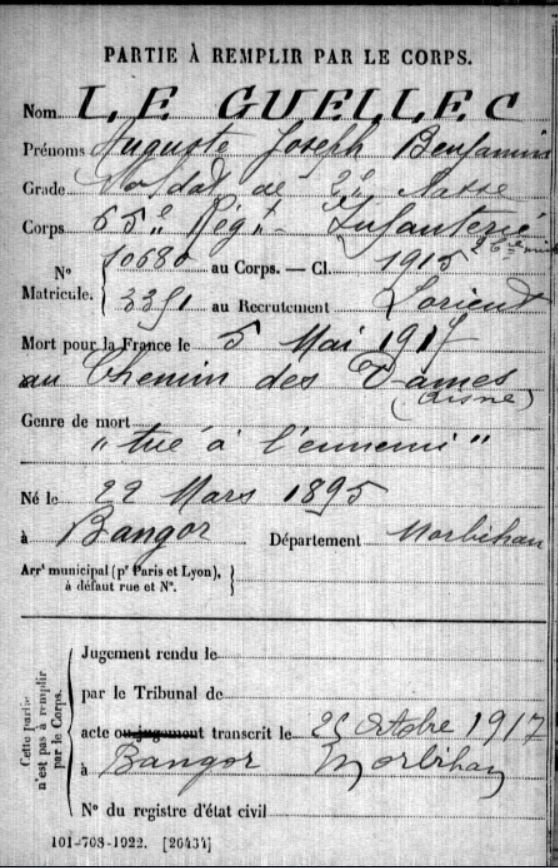 PARTIE À REMPLIR PAR LE CORPS.
Nom LE GUELLEC
Prénoms Auguste Joseph Benjamin
Grade Soldat de 2e classe
Corps 65e Régt Infanterie
N° Matricule. 10680 au Corps. — Cl. 1915
3351 au Recrutement Lorient
Mort pour la France le 5 Mai 1917
au Chemin des Dames
(Aisne)
Genre de mort
"tué à l'ennemi"
Né le 22 Mars 1895
à Bangor Département Morbihan
Arrt municipal (pr Paris et Lyon),
à défaut rue et N°.
Cette partie n'est pas à remplir par le Corps.
Jugement rendu le
par le Tribunal de
acte ou jugement transcrit le 25 octobre 1917
à Bangor Morbihan
N° du registre d'état civil
101-708-1922. [26434]